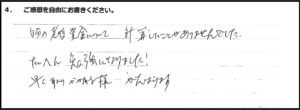 4. ご感想を自由にお書きください。
日々の 資金について 計算したことがありませんでした。
たいへん 勉強になりました!
早く 様 がんばります